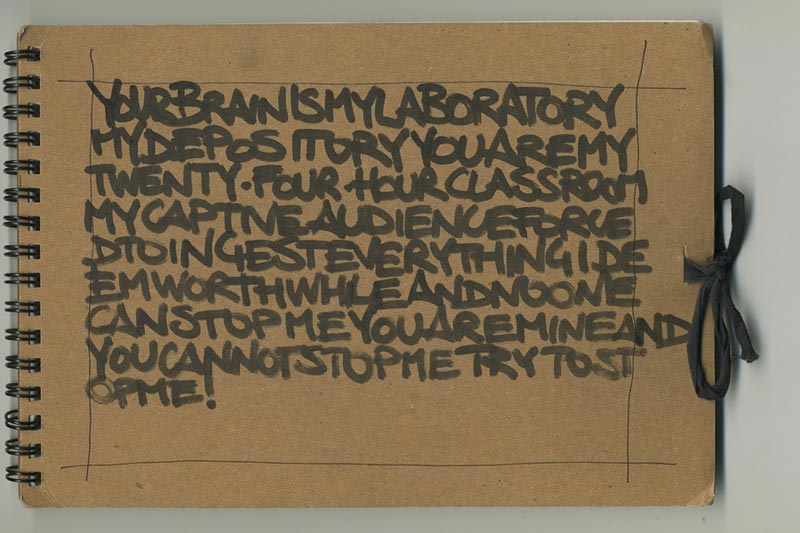 YOURBRAINISMYLABORATORY
MYDEPOSITORYYOUAREMY
TWENTY·FOUR·HOURCLASSROOM
MYCAPTIVEAUDIENCEFORCE
DTOINGESTEVERYTHINGIDE
EMWORTHWHILEANDNOONE
CANSTOPMEYOUAREMINEAND
YOUCANNOTSTOPMETRYTOST
OPME!